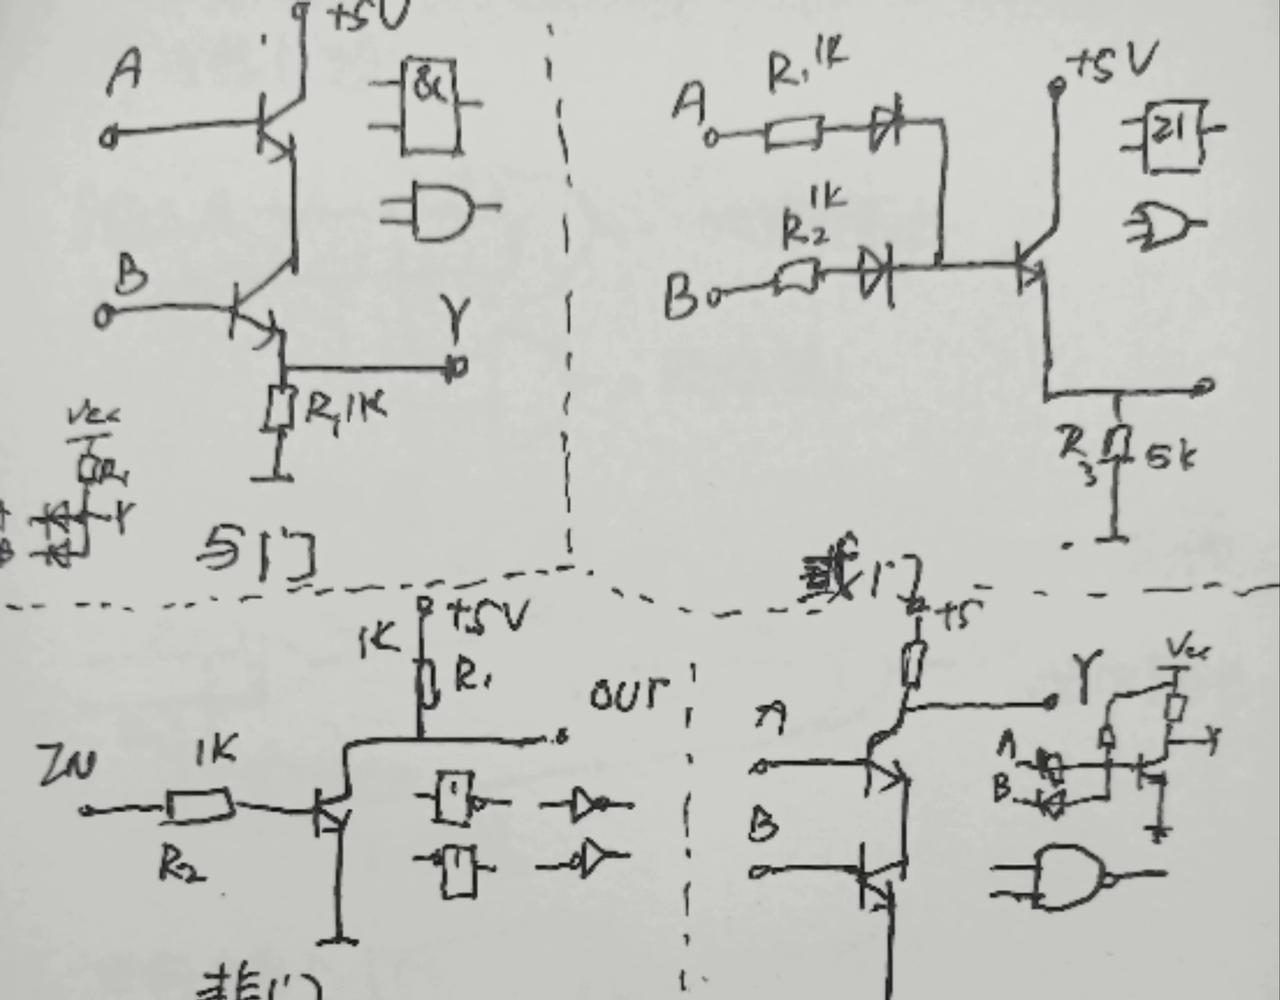 +5V
A
&
B
Y
R1 1K
Vcc
R
Y
B
与门
R1 1K
+5V
A
≥1
R2 1K
B
R3 5K
或门
+5V
1K
R1
OUT
IN
1K
R2
1
1
非门
+5
Y
Vcc
A
A
B
Y
B